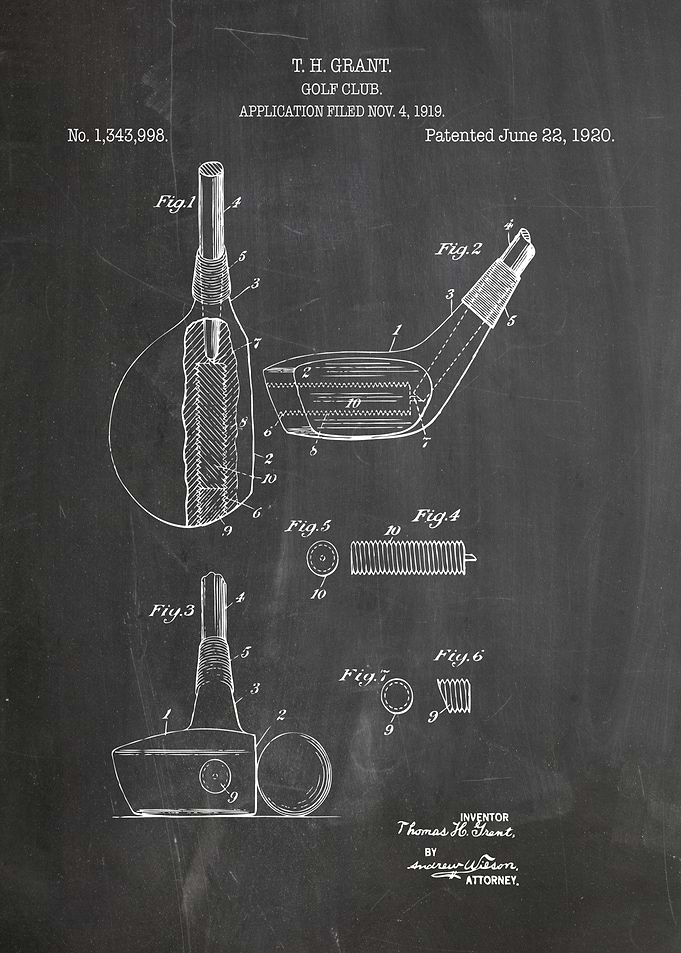 T. H. GRANT.
GOLF CLUB.
APPLICATION FILED NOV. 4, 1919.
No. 1,343,998.
Patented June 22, 1920.
Fig.1
4
5
3
7
8
2
10
6
9
Fig.2
4
3
5
1
2
10
6
8
7
Fig.5
10
Fig.4
10
Fig.3
4
5
3
1
2
9
Fig.7
9
Fig.6
9
INVENTOR
Thomas H. Grant,
BY
Andrew Wilson,
ATTORNEY.